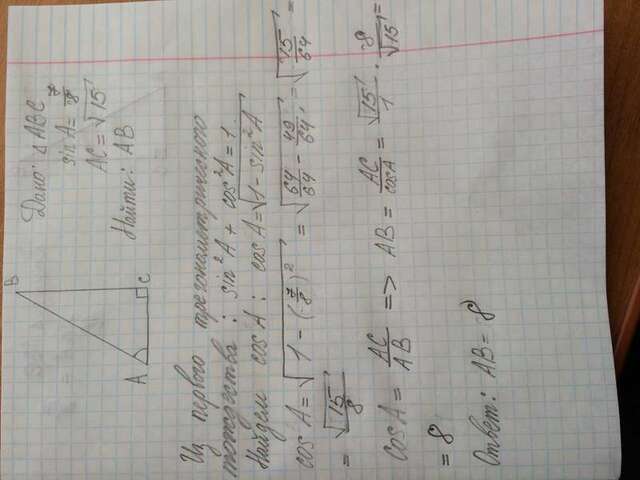 B
A
C
Дано: △ABC
sin A = 7/8
AC = √15
Найти: AB
Из первого тригонометрического
тождества: sin²A + cos²A = 1
Найдем cos A: cos A = √(1 - sin²A)
cos A = √(1 - (7/8)²) = √(64/64 - 49/64) = √(15/64) =
= √15/8
cos A = AC/AB => AB = AC/cosA = √15/1 · 8/√15 =
= 8
Ответ: AB = 8